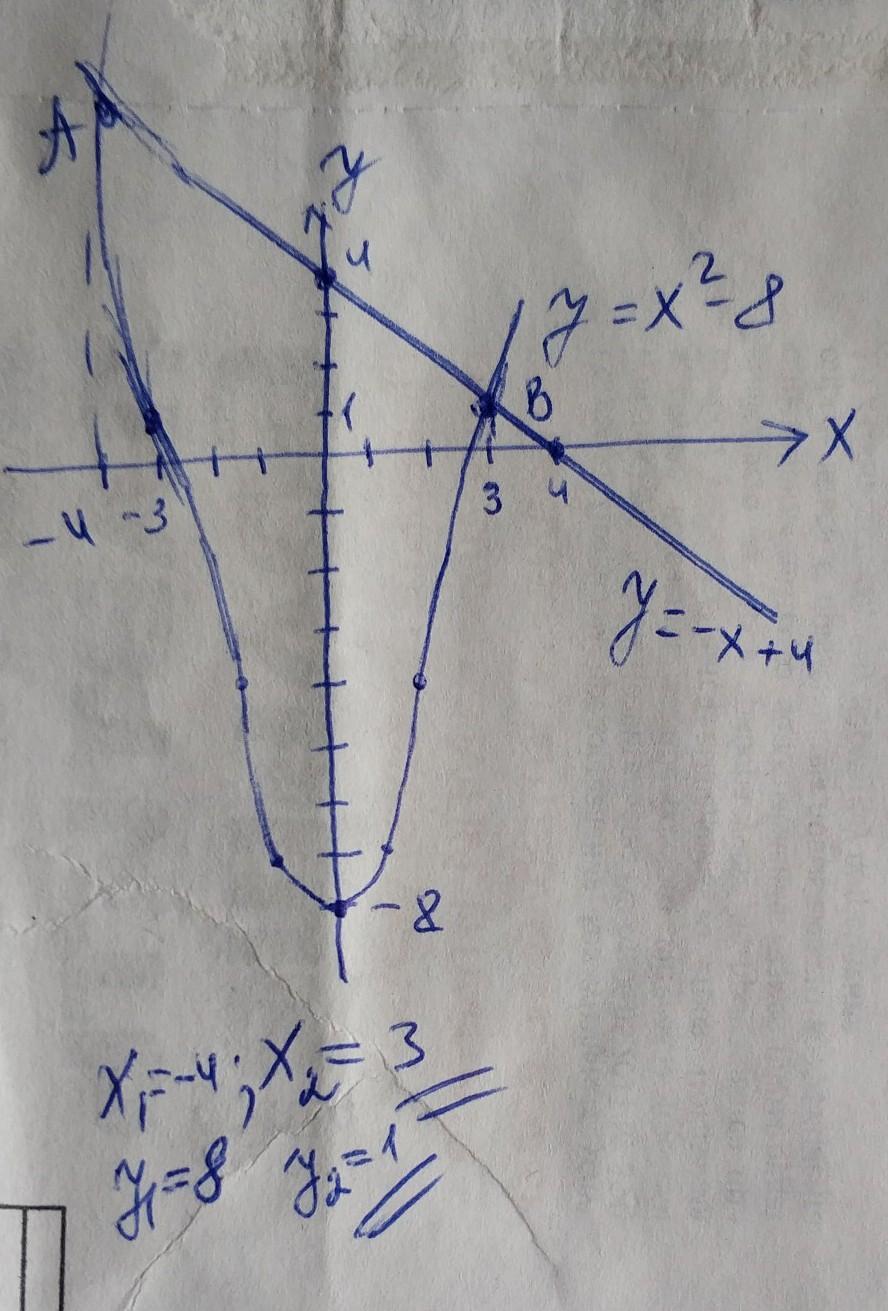 A
y
4
y = x² - 8
1
B
x
-4 -3
3 4
y = -x + 4
-8
x₁ = -4; x₂ = 3
y₁ = 8 y₂ = 1